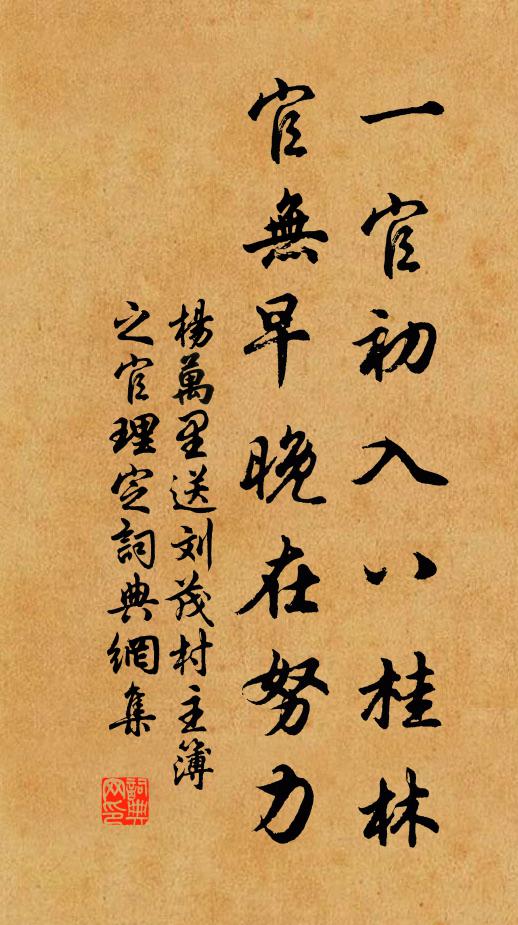 一官初入八桂林
官無早晚在努力
楊萬里送刘茂村主簿
之官理定詞典網集
詞典网印